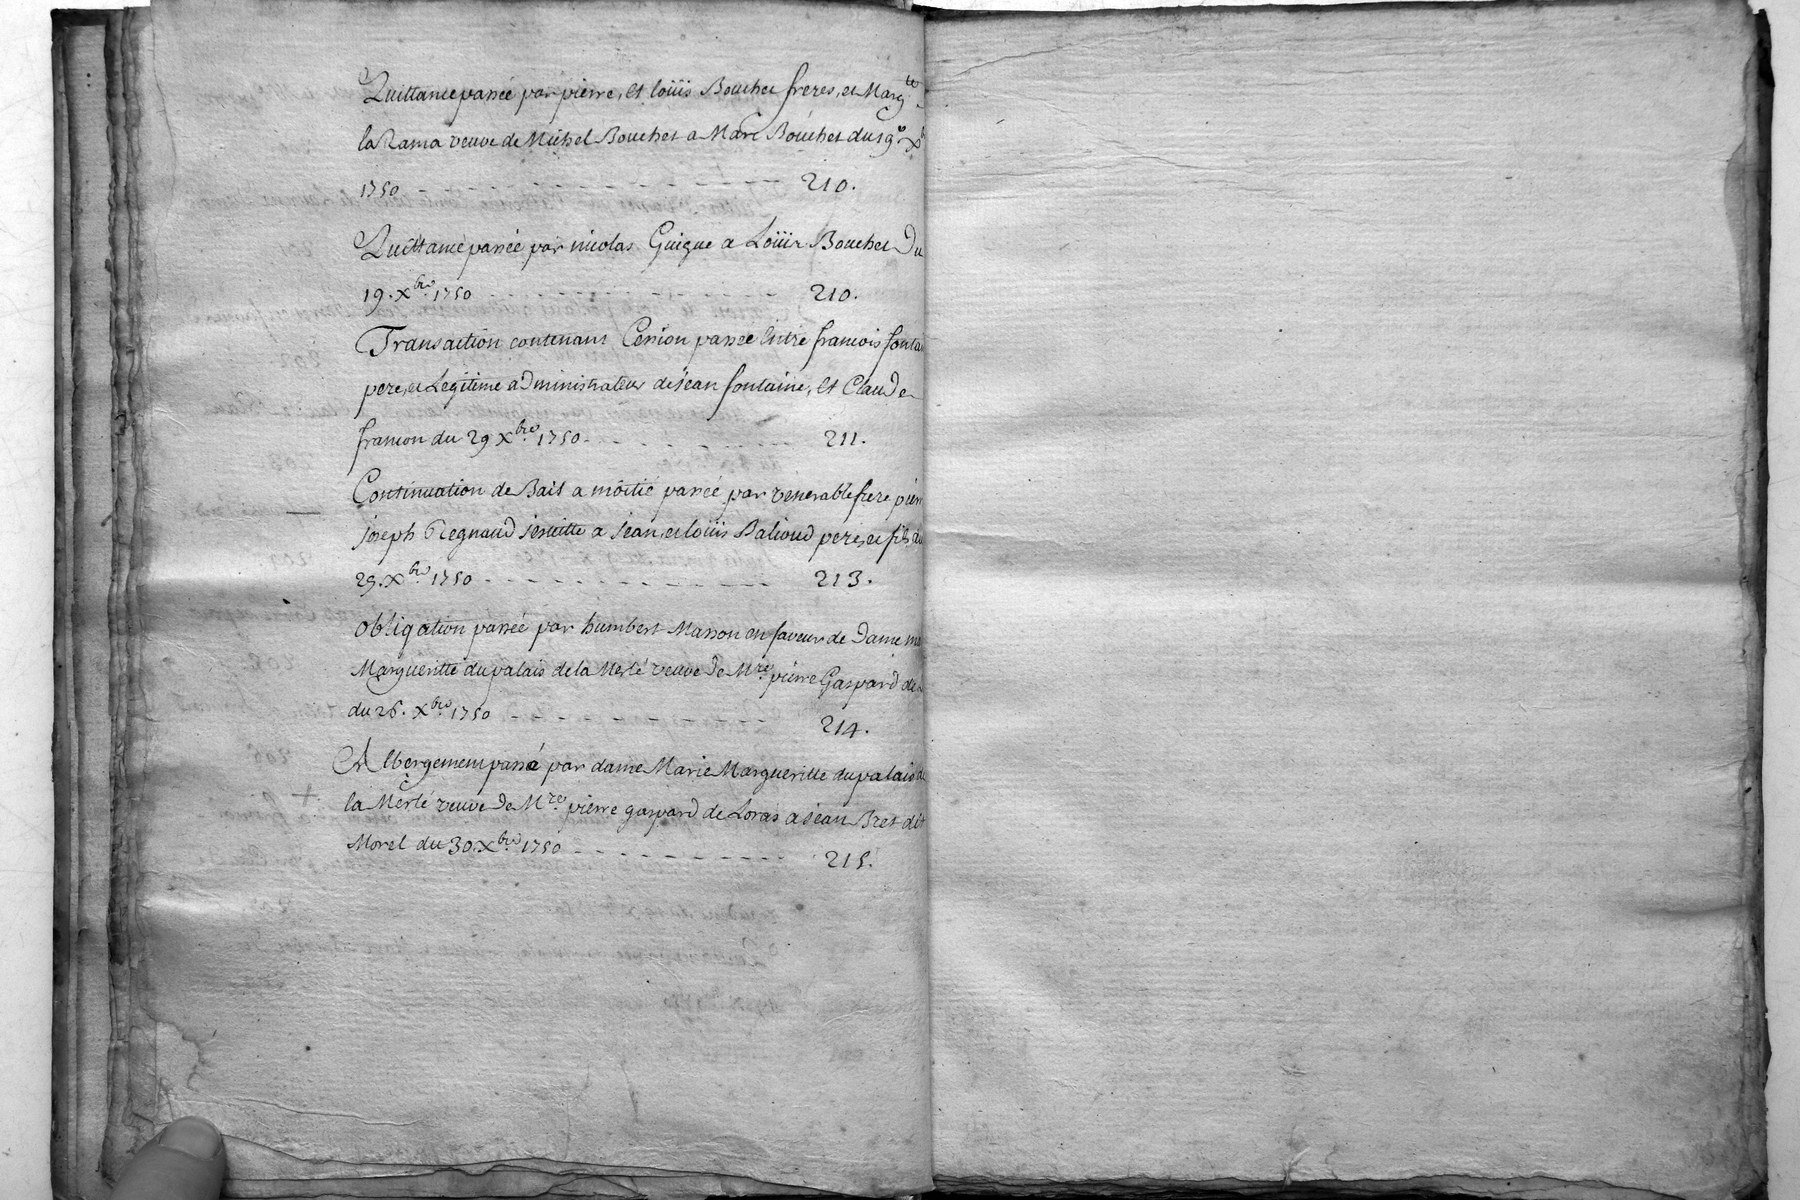 Quittance passée par pierre, et loüis Bouchet freres, et Marg.te
la Rama veuve de Michel Bouchet a Marc Bouchet du 19.e X
1750 - - - - - - - - - - - - - 210.
Quittance passée par nicolas Guigue a Loüis Bouchet Du
19. Xbre. 1750 - - - - - - - - - - 210.
Transaction contenant Cession passée Entre francois
pere, et Legitime administrateur de jean fontaine, et Claude
francon du 29 Xbre. 1750 - - - - - - - - - 211.
Continuation de Bail a moitié passée par venerable frere
joseph Regnaud jesuitte a jean, et loüis Balioud pere, et fils
29. Xbre. 1750 - - - - - - - - - - 213.
obligation passée par humbert Masson en faveur de Dame
Margueritte du palais de la Merlé veuve de Mre. pierre Gaspard de
du 26. Xbre. 1750 - - - - - - - - - 214.
Albergement passé par dame Marie Margueritte du palais de
la Merlé veuve de Mre. pierre gaspard de Loras a jean Bret dit
Morel du 30. Xbre. 1750 - - - - - - - - - - 215.